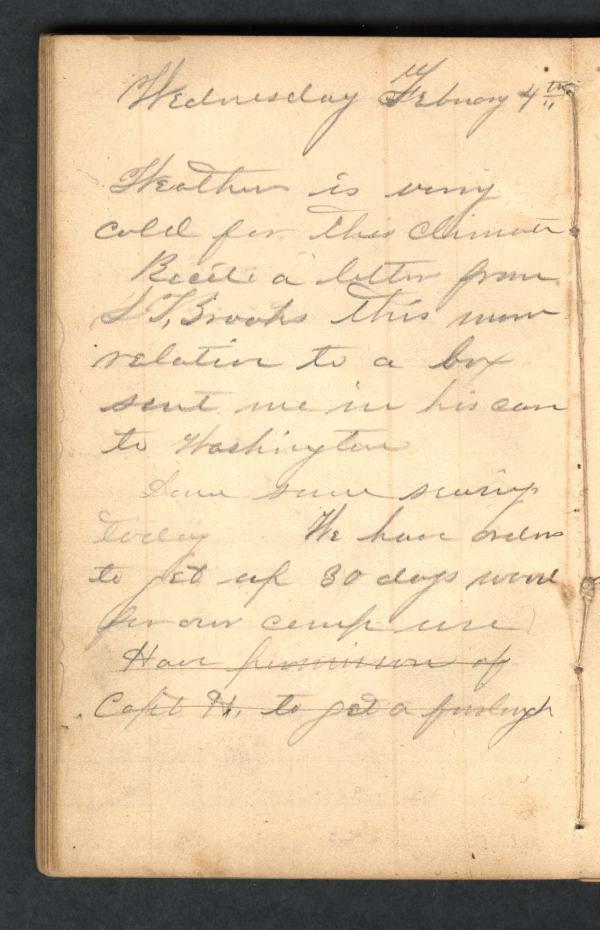 Wednesday Febuary 4th
Weather is very
cold for this climate
Recd a letter from
S T, Brooks this morn
relative to a box
sent me in his care
to Washington
Done some sewing
today We have orders
to get up 30 days wood
for our camp use
Have permission of
Capt H. to get a furlough